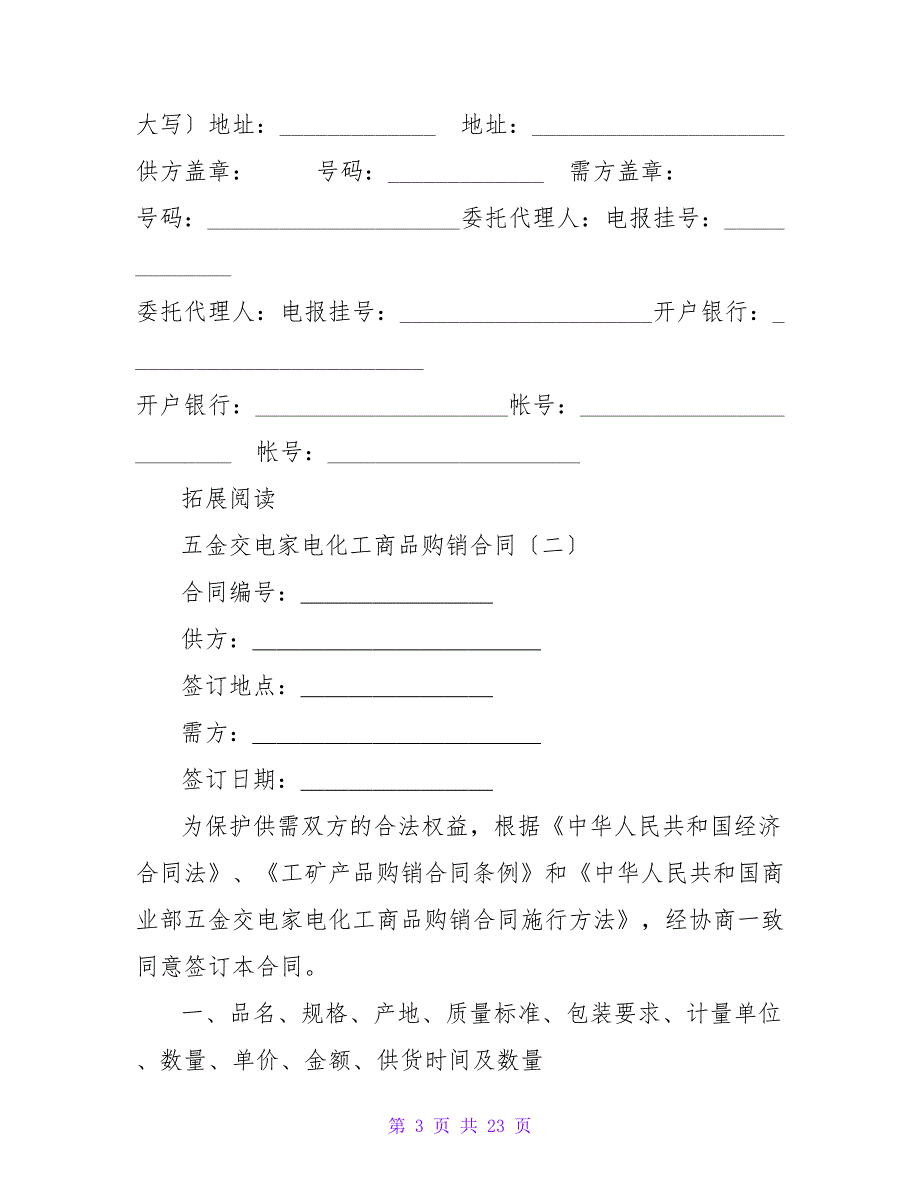 大写〕地址：_____________　地址：_____________________
供方盖章：　　　号码：_____________　需方盖章：
号码：_____________________委托代理人：电报挂号：_____
________
委托代理人：电报挂号：_____________________开户银行：_
________________________
开户银行：_____________________帐号：_________________
________　帐号：_____________________
拓展阅读
五金交电家电化工商品购销合同〔二〕
合同编号：________________
供方：________________________
签订地点：________________
需方：________________________
签订日期：________________
为保护供需双方的合法权益，根据《中华人民共和国经济
合同法》、《工矿产品购销合同条例》和《中华人民共和国商
业部五金交电家电化工商品购销合同施行方法》，经协商一致
同意签订本合同。
一、品名、规格、产地、质量标准、包装要求、计量单位
、数量、单价、金额、供货时间及数量
第 3 页 共 23 页